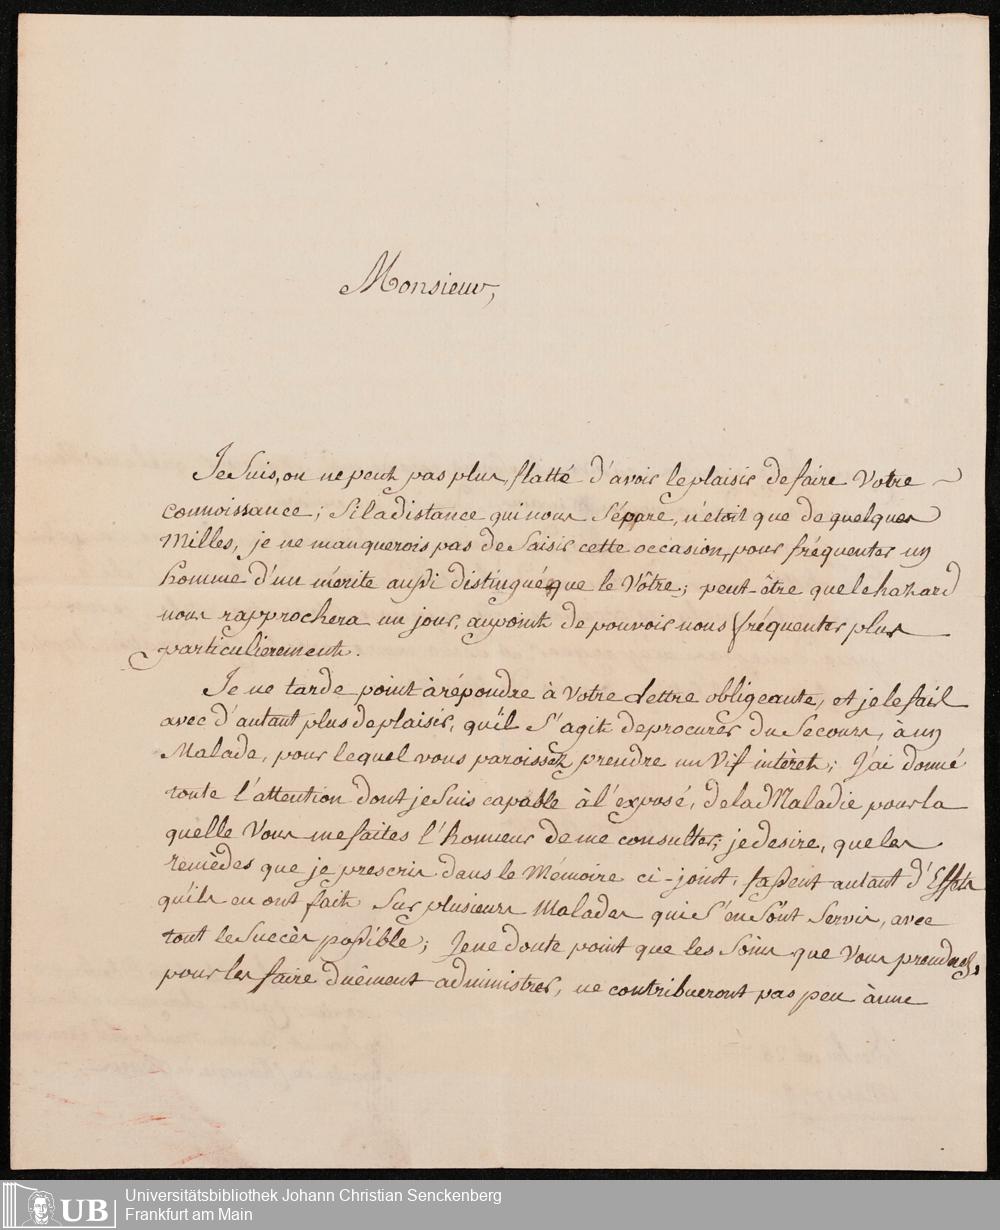 Monsieur,
Je Suis, on ne peut pas plus, flatté d'avoir le plaisir de faire Votre
connoissance; Si la distance qui nous Sépare, n'étoit que de quelques
Milles, je ne manquerois pas de Saisir cette occasion, pour fréquenter un
homme d'un mérite aussi distingué, que le Vôtre; peut-être que le hazard
nous rapprochera un jour, au point de pouvoir nous fréquenter plus
particulierement.
Je ne tarde point à répondre à Votre Lettre obligeante, et je le fait
avec d'autant plus de plaisir, qu'il S'agit de procurer du Secours, à un
Malade, pour lequel vous paroissez prendre un Vif intèret; J'ai donné
toute l'attention dont je Suis capable à l'exposé, de la Maladie pour la
quelle Vous me faites l'honneur de me consulter; je desire, que les
remèdes que je prescris dans le Mémoire ci-joint, fassent autant d'Effets
qu'ils en ont fait Sur plusieurs Malades qui S'en Sont Servis, avec
tout le Succès possible; Je ne doute point que les Soins que Vous prendrez,
pour les faire duêment administrer, ne contribueront pas peu à une
Universitätsbibliothek Johann Christian Senckenberg
UB Frankfurt am Main